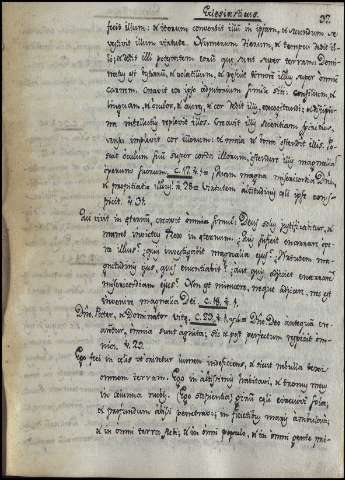 Ecclesiasticus. 97.
fecit illum: & iterum convertit illū in ipsam, & secundum se
vestivit illum virtute. Numerum dierum, & tempus dedit il-
li, & dedit illi potestatem eorū, quae sunt super terram. Domi-
natus est bestiarū, & volatilium, & posuit timorē illiꝰ super omnē
carnem. Creavit ex ipso adjutorium simile sibi: Consilium, &
linguam, & oculos, & aures, & cor dedit illis, excogitandi: & discipli-
na intellectus replevit illos. Creavit illis scientiam spiritus,
sensu implevit cor illorum: & mala & bona ostendit illis. Po-
suit oculum suū super corda illorum, ostendere illis magnalia
operum suorum. c. 17. ℣. 1. Quam magna misericordia Dn̄i,
& propitiatio illius! ℣ 28. Virtutem altitudinis cęli ipse conspi-
cit. ℣. 31.
Qui vivit in ęternū, creavit omnia simul: Deus solus justificabitur, &
manet invictus Rex in ęternum: Quis sufficit enarrare ope-
ra illius? quis investigabit magnalia ejus? Virtutem ma-
gnitudinis ejus, quis enuntiabit? aut quis adjiciet enarrare
misericordiam ejus? Non est minuere, neque adjicere, nec est
invenire magnalia Dei. c. 18. ℣. 1.
Dn̄e, Pater, & Dominator vitę. c. 23. ℣. 1. Dn̄o Deo antequā cre-
arentur, omnia sunt agnita; sic & post perfectum respicit om-
nia. ℣. 29.
Ego feci in cęlis ut oriretur lumen indeficiens, & sicut nebula texi
omnem terram. Ego in altissimis habitavi, & thronus meus
in columna nubis. Gyrū cęli circuivi sola,
& profundum abyssi penetravi; in fluctibus maris ambulavi,
& in omni terra steti; & in omni populo, & in omni gente pri-